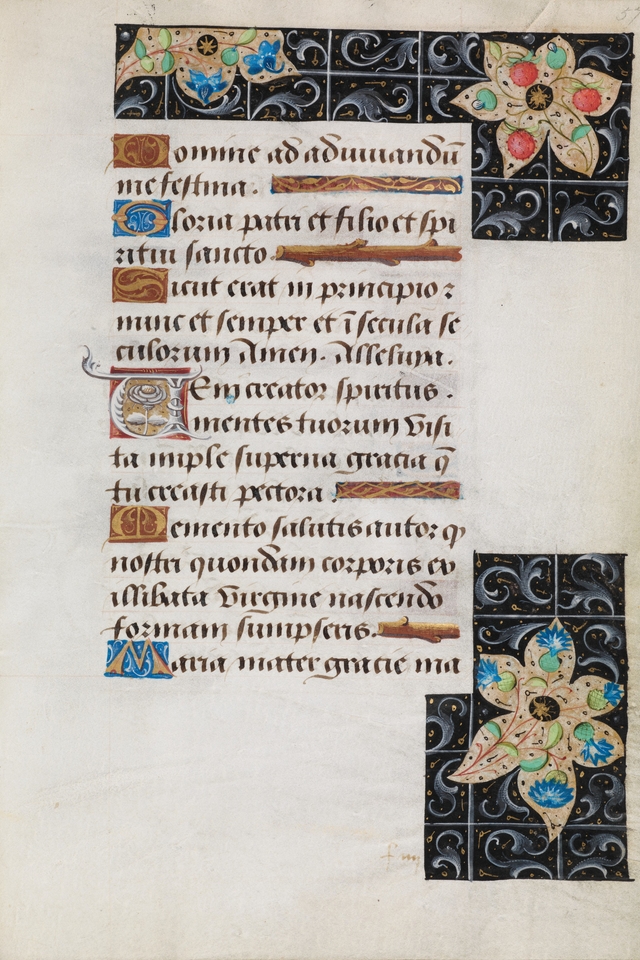 Domine ad adiuuandū
me festina.
Gloria patri et filio et spi
ritui sancto.
Sicut erat in principio ꝛ
nunc et semper et ī secula se
culorum Amen. Alleluya.
VEni creator spiritus.
mentes tuorum Visi
ta imple superna gracia q̄
tu creasti pectora.
Memento salutis autor ꝙ
nostri quondam corporis ex
illibata Virgine nascendo
formam sumpseris.
Maria mater gracie ma